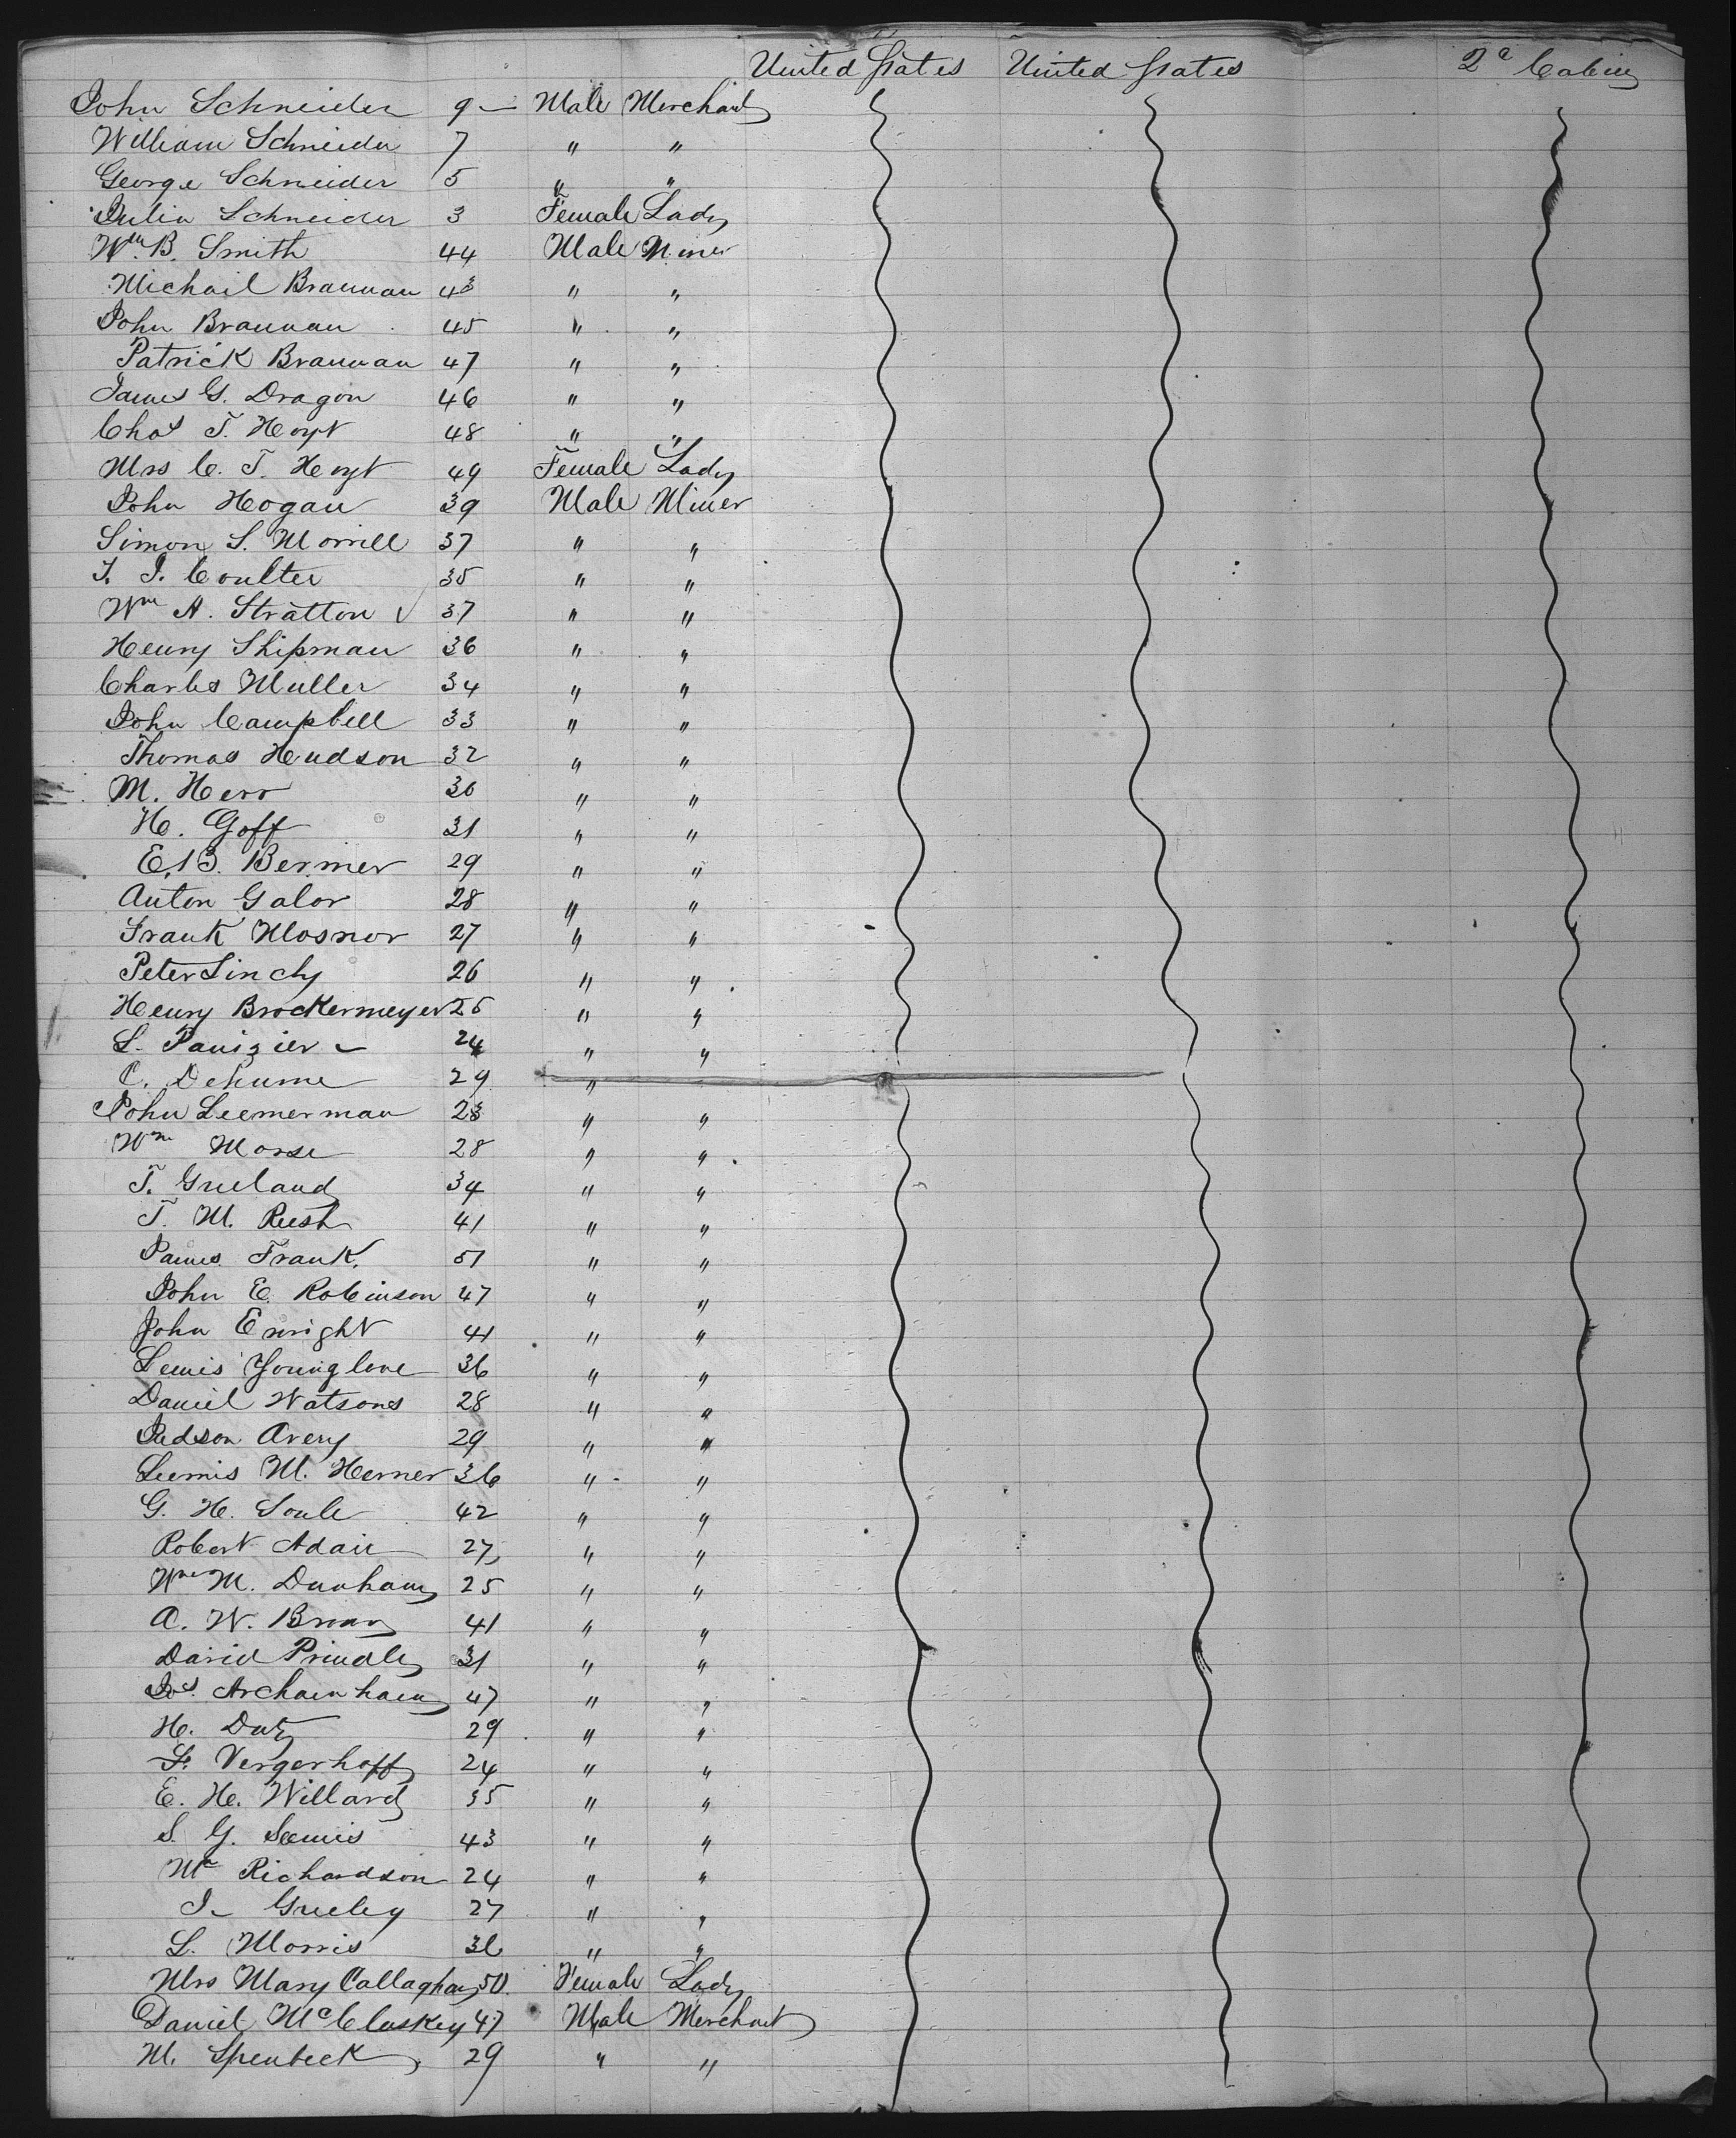 United States United States 2d Cabin
John Schneider 9 Male Merchant
William Schneider 7 " "
George Schneider 5 " "
Julia Schneider 3 Female Lady
Wm. B. Smith 44 Male Miner
Michail Brannan 43 " "
John Brannan 45 " "
Patrick Brannan 47 " "
James G. Dragon 46 " "
Chas T. Hoyt 48 " "
Mrs C. T. Hoyt 49 Female Lady
John Hogan 39 Male Miner
Simon S. Morrill 37 " "
T. J. Coulter 35 " "
Wm A. Stratton 37 " "
Henry Shipman 36 " "
Charles Muller 34 " "
John Campbell 33 " "
Thomas Hudson 32 " "
M. Herr 30 " "
H. Goff 31 " "
E. B. Bermer 29 " "
Anton Galor 28 " "
Frank Mosnor 27 " "
Peter Linchy 26 " "
Henry Brockermeyer 25 " "
L. Panizier 24 " "
C. Dehume 29 "
John Leemerman 23 " "
Wm Morse 28 " "
T. Greeland 34 " "
T. M. Rush 41 " "
James Frank. 51 " "
John E. Robinson 47 " "
John Enright 41 " "
Lewis Younglove 36 " "
Daniel Watsons 28 " "
Judson Avery 29 " "
Lewis M. Herner 36 " "
G. H. Soule 42 " "
Robert Adair 27 " "
Wm M. Dunham 25 " "
A. W. Brown 41 " "
David Prindle 31 " "
Jos. 47 " "
H. Duty 29 " "
F. Vergerhoff 24 " "
E. H. Willard 35 " "
S. G. Lewis 43 " "
Mr Richardson 24 " "
J. Greeley 27 " "
L. Morris 36 " "
Mrs Mary Callaghan 50. Female Lady
Daniel McCluskey 47 Male Merchant
M. Spenbeck 29 " "